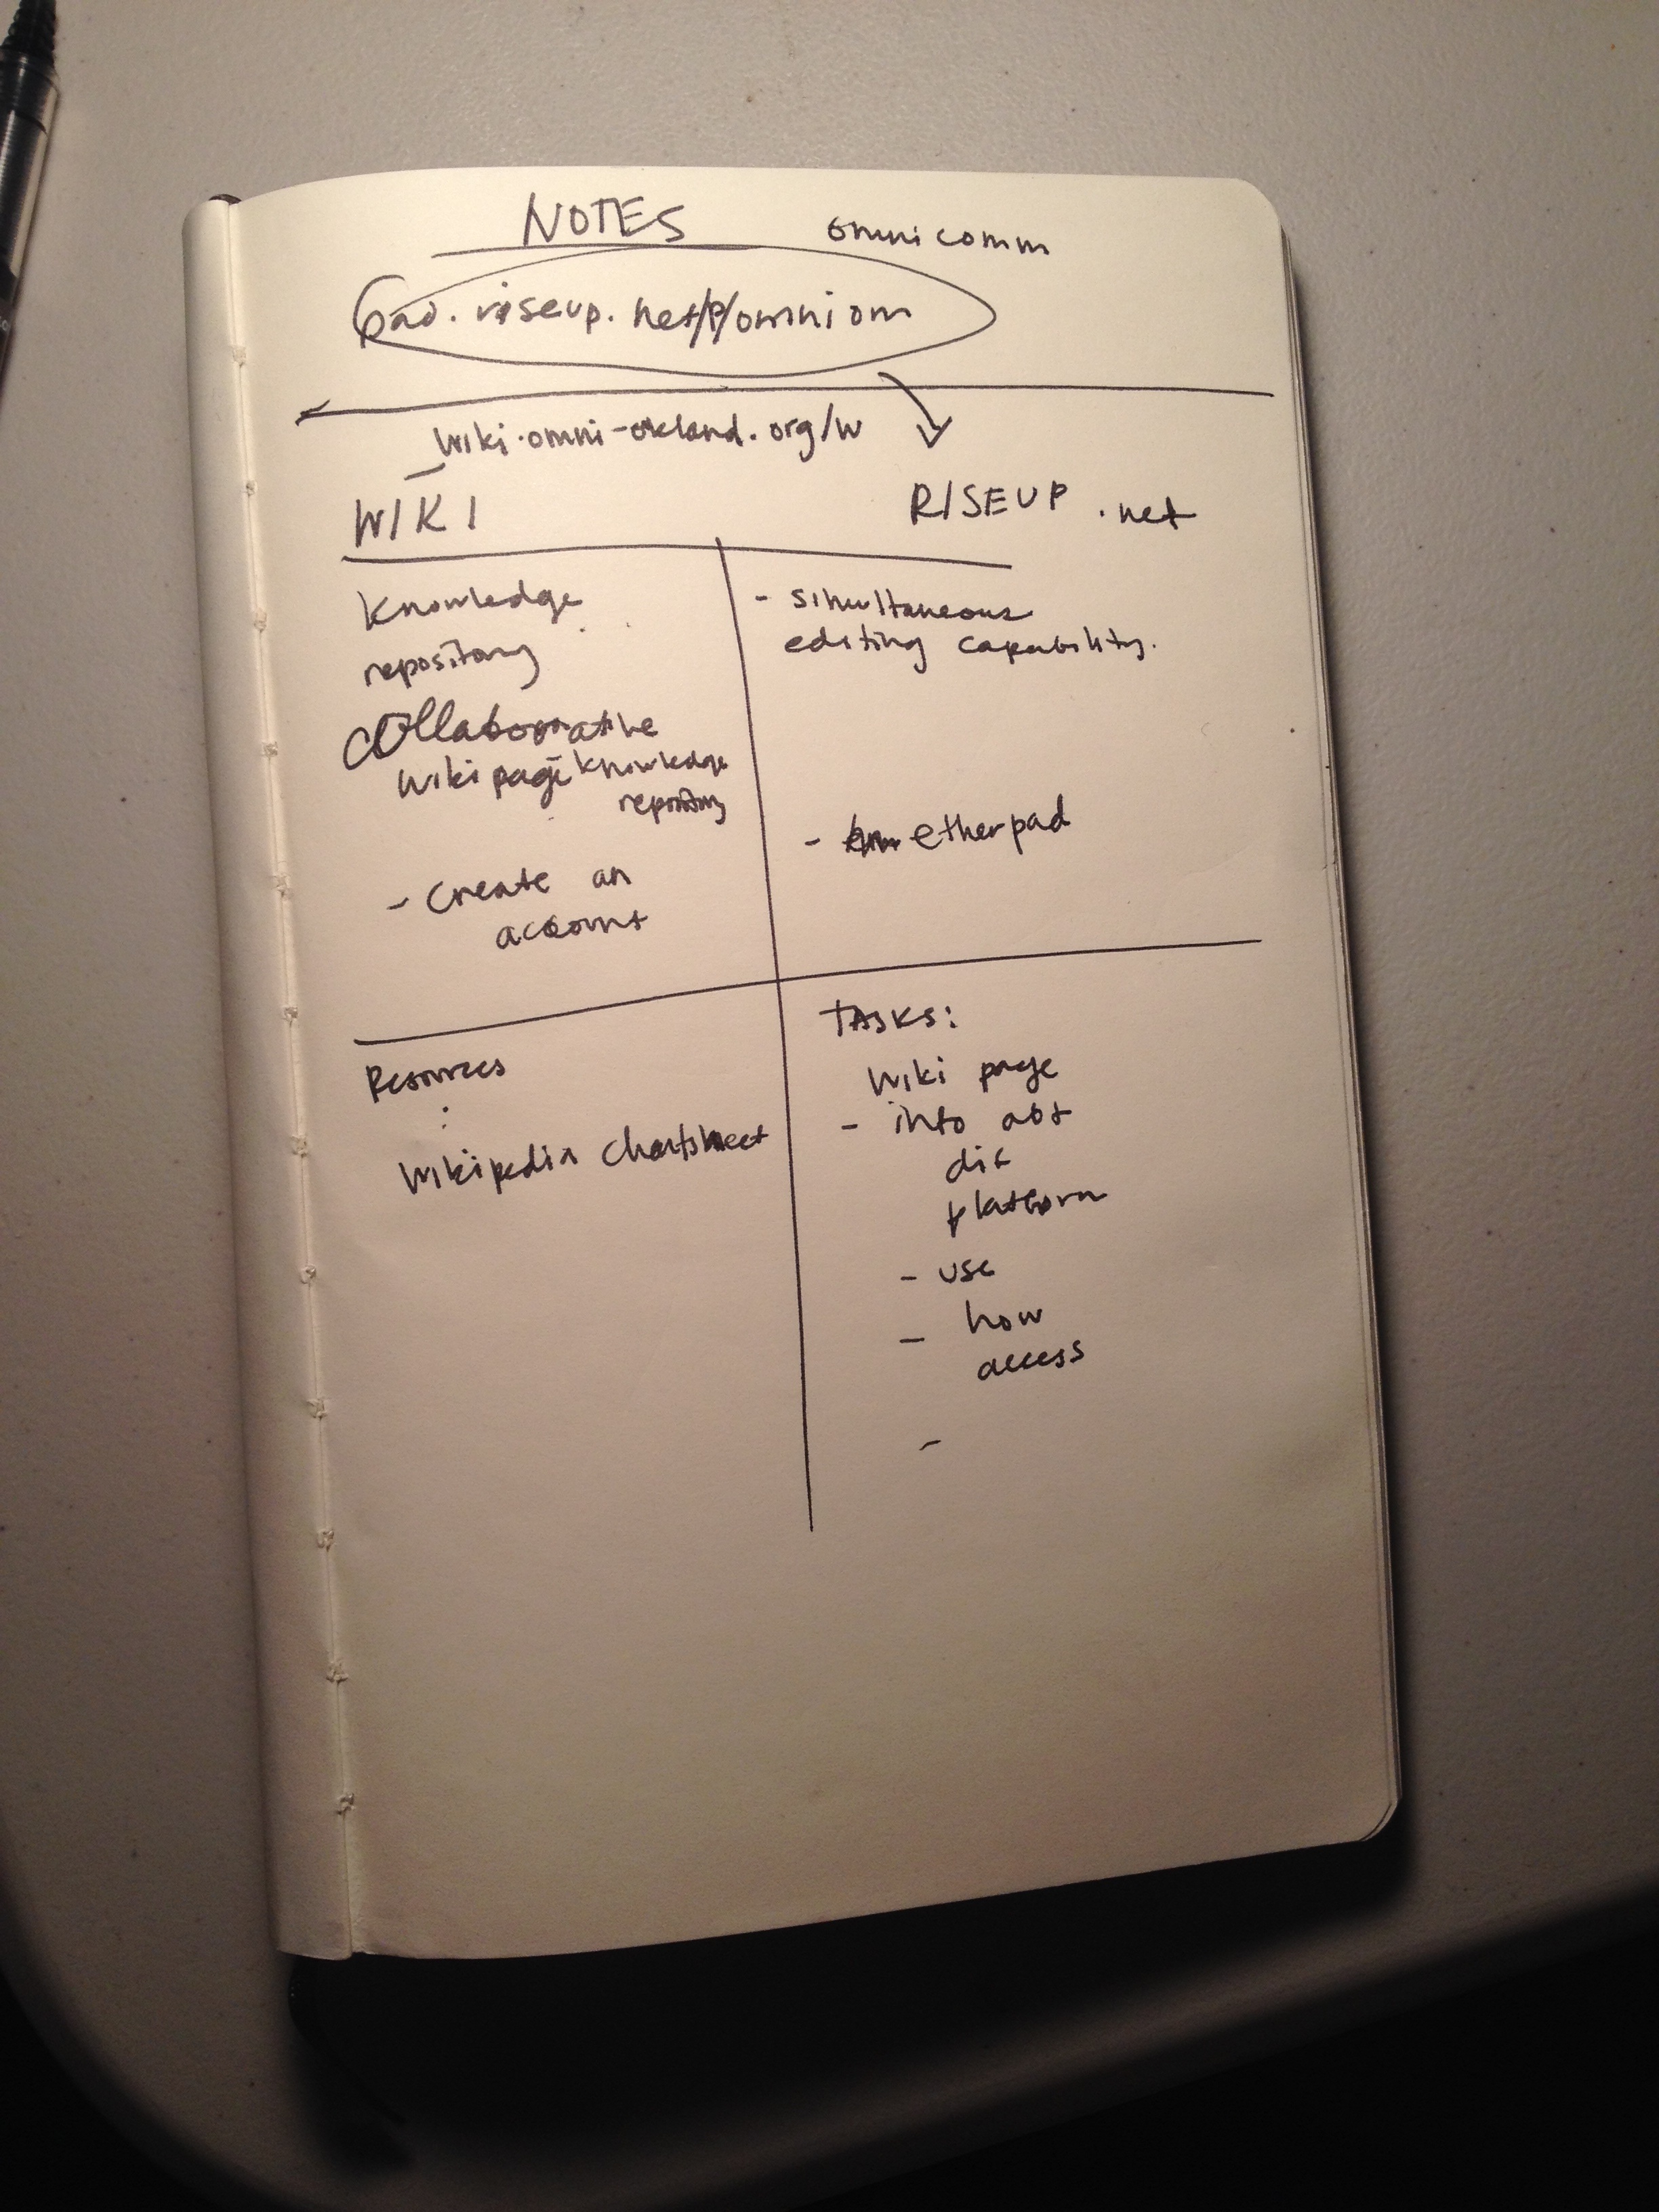 NOTES omni comm
pad.riseup.net/p/omniom
wiki.omni-okland.org/w
WIKI
RISEUP .net
Knowledge
repository
collaborative
wiki page knowledge
repository
- Create an
account
- simultaneous
editing capability.
- etherpad
Resources
:
Wikipedia Cheatsheet
TASKS:
Wiki page
- info abt
platform
- use
- how
access
-